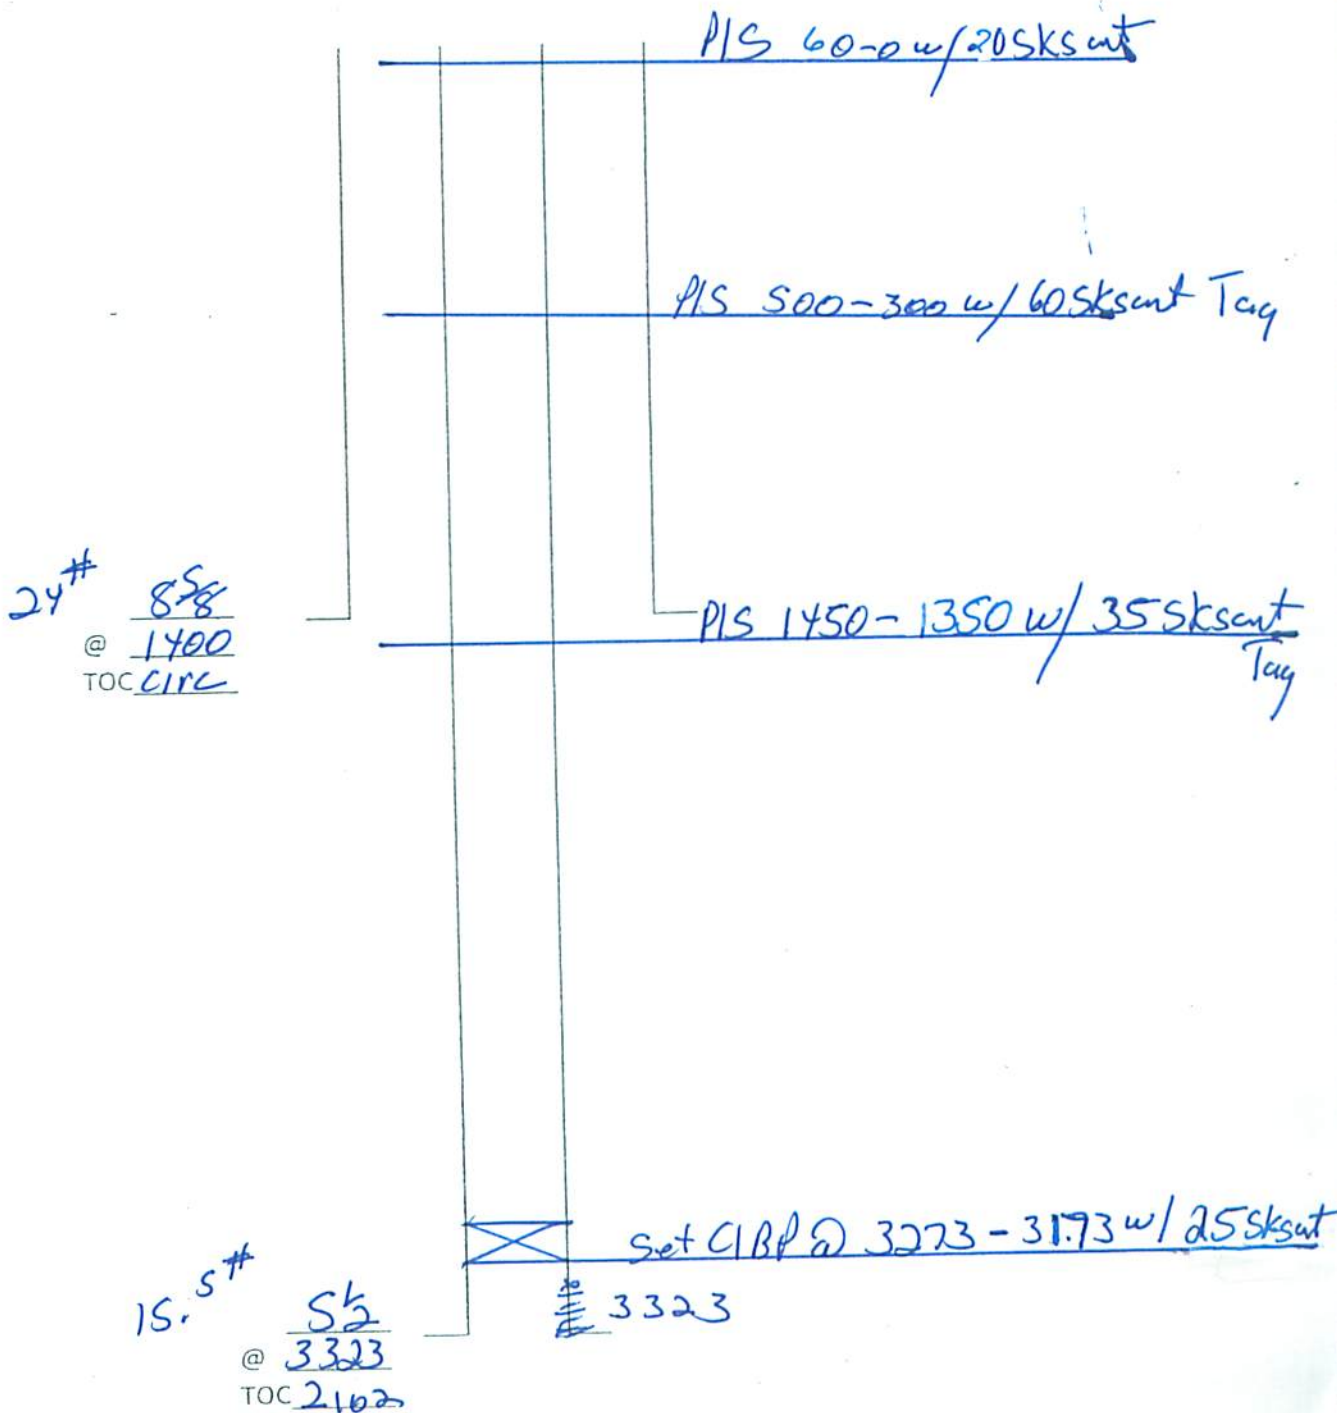 P/S 60-0 w/20 SKS cmt
P/S 500-300 w/ 60 SKs cmt Tag
24#
8 5/8
@ 1400
TOC Circ
P/S 1450-1350 w/ 35 Sks cmt
Tag
Set CIBP @ 3273-3193 w/ 25 Sks cmt
15.5#
5 1/2
@ 3323
TOC 2102
3323